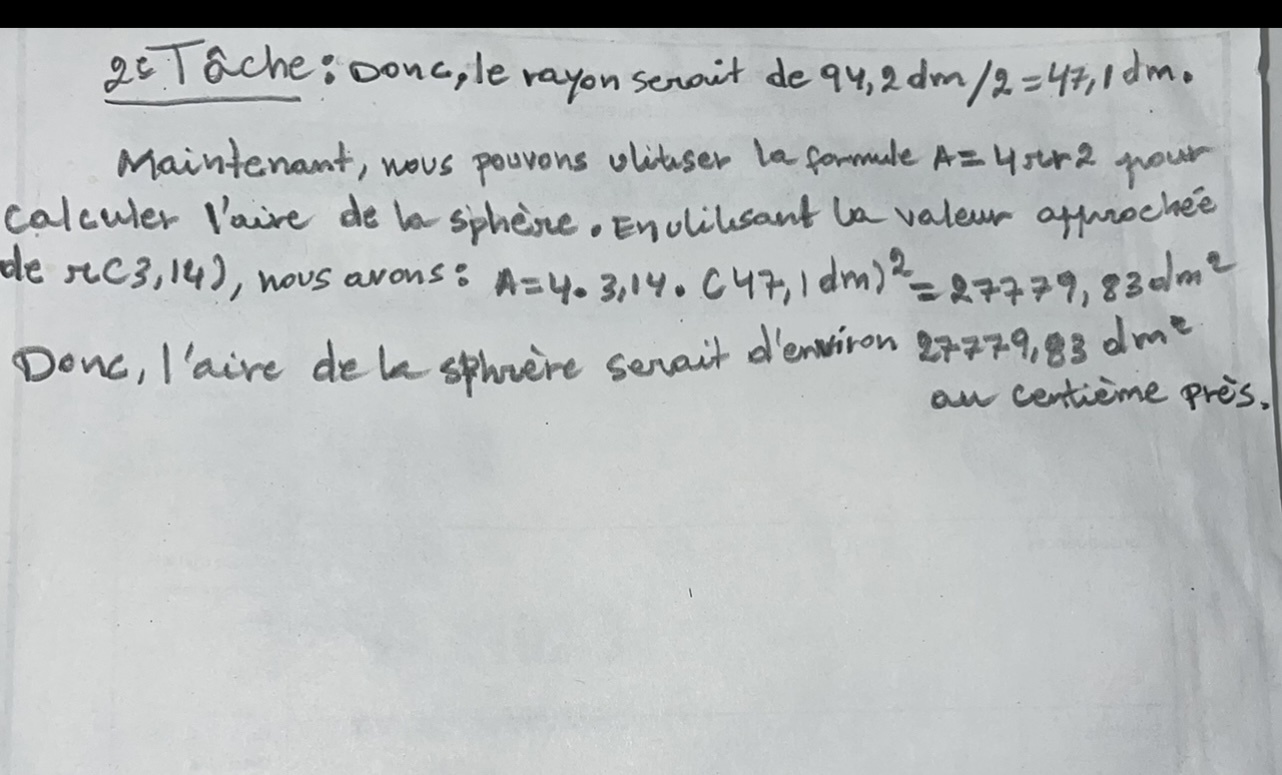 2e Tâche : Donc, le rayon serait de 94,2 dm/2 = 47,1 dm.
Maintenant, nous pouvons uliliser la formule A = 4πr2 pour
calculer l'aire de la sphère. En ulilisant la valeur approchée
de π(3,14), nous avons : A = 4. 3,14. (47,1 dm)² = 27779,83 dm²
Donc, l'aire de la sphère serait d'environ 27779,83 dm²
au centième près.